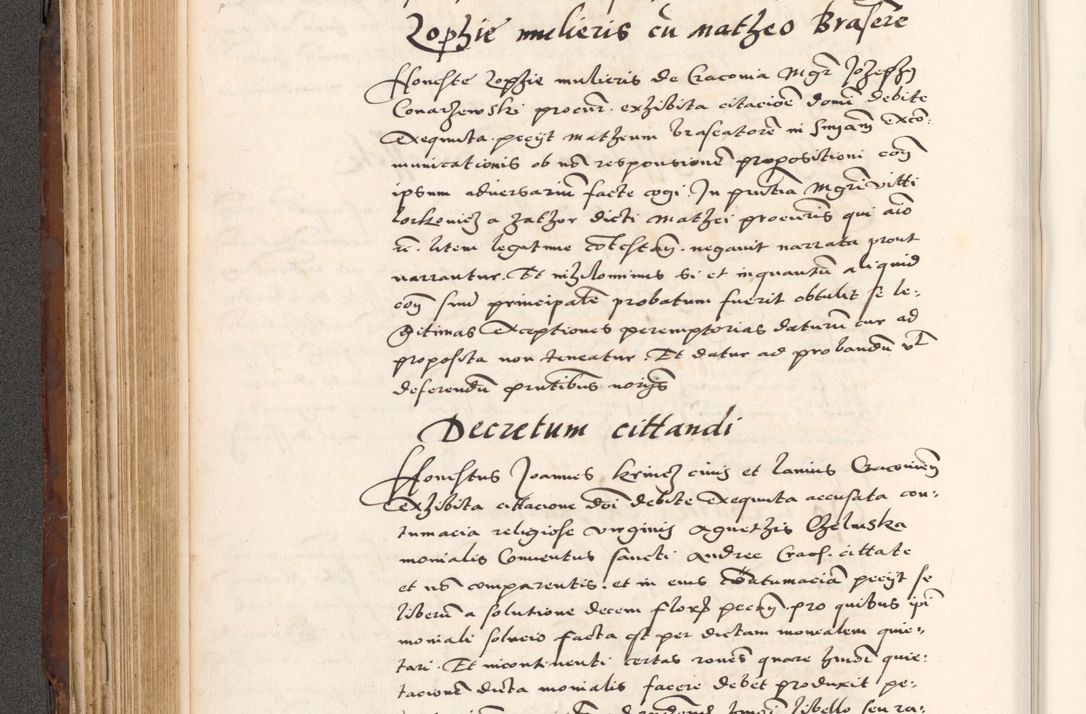 Zophie mulieris cũ Matheo Brasere
Honeste Zophie mulieris de Cracovia Mgr̃ Joseph
Conarzewski procur. exhibita citacioẽ domĩ debite
Exequuta. pecijt Matheum braseatorẽ in Sniam exco-
municationis ob nõ responsionem propositioni coñ
ipsum adversarium facte cogi. In pñtia Mgri Vitti
a Zathor dicti Mathei procuris qui aĩo
rẽ. litem legitime cõtestañ. negavit narrata prout
narrantur. Et nihilominus si et inquantũ aliquid
coñ suũ principalẽ probatum fuerit obtulit se le-
gitimas Exceptiones peremptorias daturũ cur ad
proposita non teneatur. Et datur ad probandũ vł
deferendũ pñtibus
Decretum cittandi
Honestus Joannes civis et lanius Cracovieñ
Exhibita cittacione doĩ debite Exequuta accusata con-
tumacia religiose virginis Agnethis Chelmska
monialis Conventus sancti Andree Crac. cittate
et nõ comparentis. et in eius cõtumaciam pecijt se
liberũ a solutione decem floreñ pecuñ. pro quibus ipĩ
moniali solucio facta est per dictam monialem quie-
tari. Et incontinenti certas rones quare hmõi quie-
tacionẽ dicta monialis facere debet produxit pe-
libello seu ra-